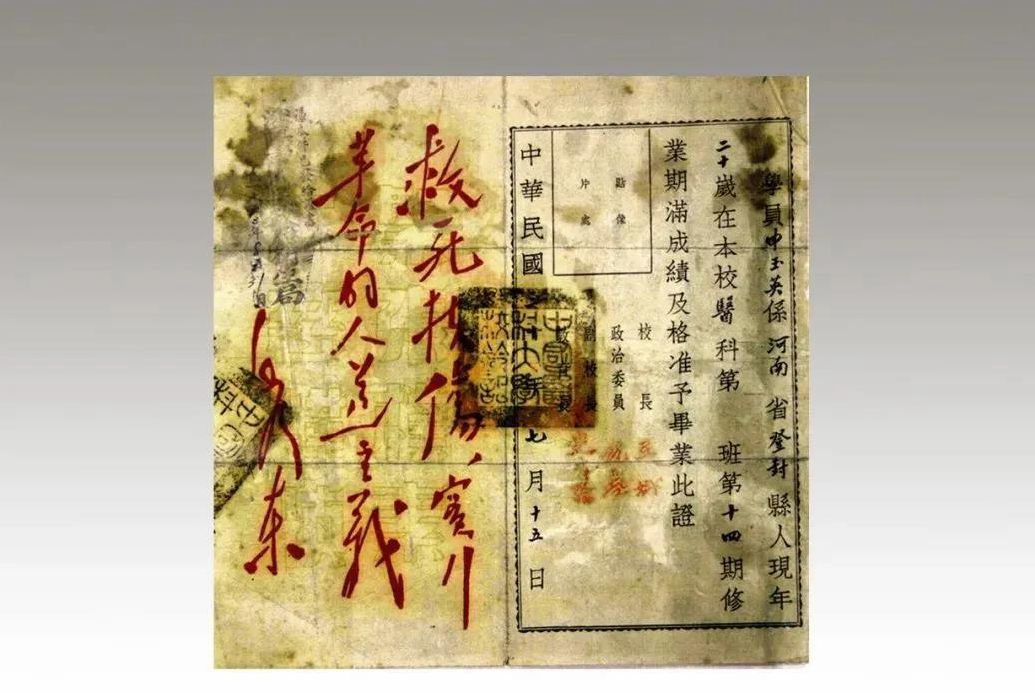 學員申玉英係河南省登封縣人現年
二十歲在本校醫科第 班第十四期修
業期滿成績及格准予畢業此證
貼像
片處
校長
政治委員
副校長
教育長
中華民國
年七月十五日
救死扶傷,實行
革命的人道主義
毛澤東